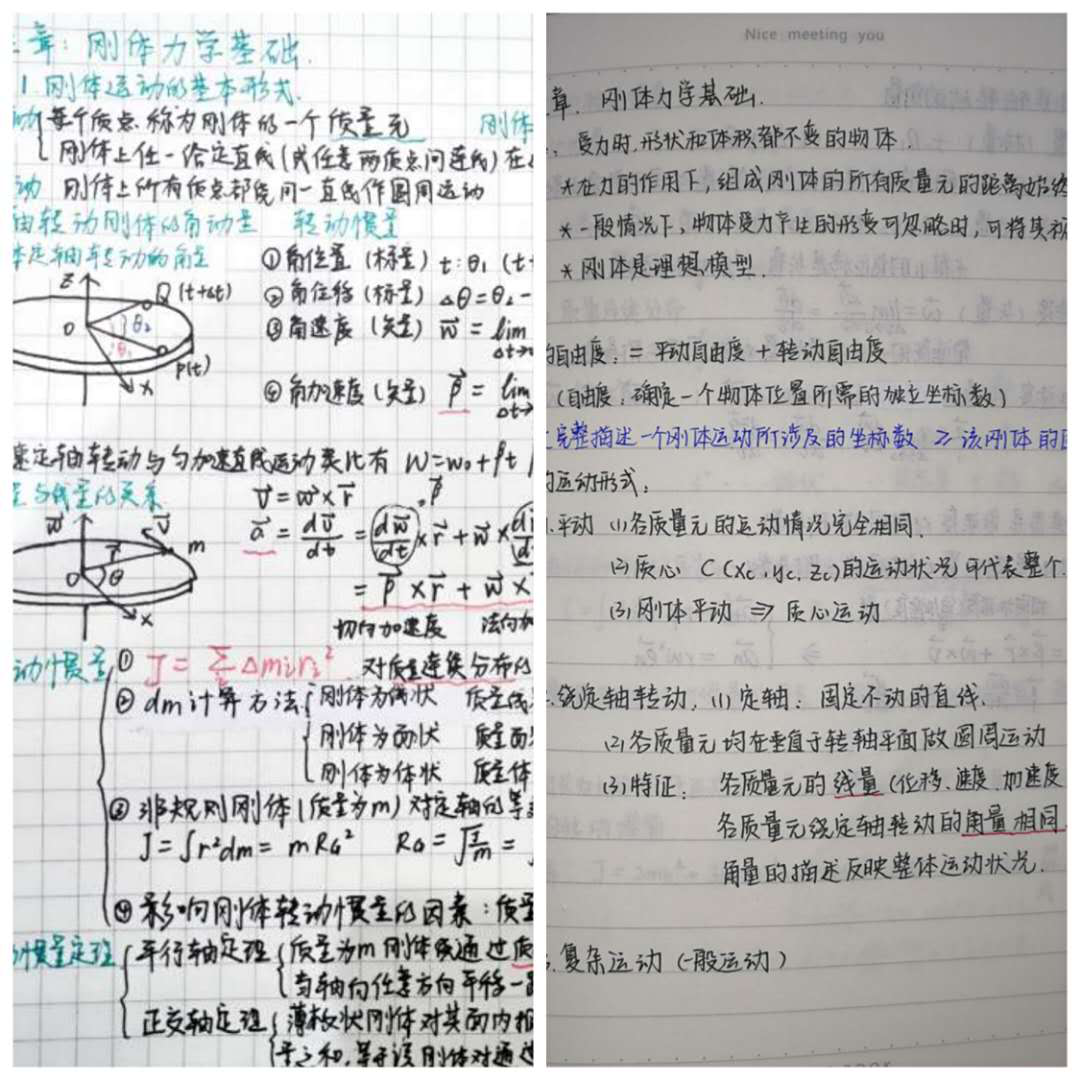 章：刚体力学基础.
1.刚体运动的基本形式.
动 每个质点称为刚体的一个质量元 刚体
刚体上任一给定直线(或任意两质点间连线)在
动 刚体上所有质点都绕同一直线作圆周运动
由转动刚体的角动量 转动惯量
定轴转动的角量 ①角位置(标量) t:θ₁ (t+
②角位移(标量) Δθ=θ₂-
③角速度(矢量) w⃗ = lim
Δt→
④角加速度(矢量) β⃗ = lim
Δt→
z
Q (t+Δt)
O θ₂
θ₁ P(t)
x
速定轴转动与匀加速直线运动类比有 W=W₀+βt
量与线量的关系 v⃗=w⃗×r⃗ β⃗
a⃗ = dv⃗/dt = dw⃗/dt ×r⃗ + w⃗×
= β⃗×r⃗ + w⃗×
切向加速度 法向加
w⃗ v⃗
r⃗ m
O θ
x
动惯量 ① J= Σ Δmiri² 对质量连续分布的
② dm计算方法 刚体为线状 质量线
刚体为面状 质量面
刚体为体状 质量体
③ 非规则刚体(质量为m)对定轴的等
J=∫r²dm= mRG² RG=√(J/m) =
④ 影响刚体转动惯量的因素：质量
惯量定理 平行轴定理 质量为m刚体绕通过质
当轴向任意方向平移一
正交轴定理 薄板状刚体对其面内相
量之和,等于该刚体对通过
Nice meeting you
章. 刚体力学基础.
、受力时,形状和体积都不变的物体
*在力的作用下,组成刚体的所有质量元的距离始终
*一般情况下,物体受力产生的形变可忽略时,可将其视
*刚体是理想模型.
的自由度：= 平动自由度+转动自由度
(自由度：确定一个物体位置所需的独立坐标数)
完整描述一个刚体运动所涉及的坐标数 ≥ 该刚体的自
的运动形式：
1.平动 (1)各质量元的运动情况完全相同.
(2)质心 C(xc,yc,zc)的运动状况可代表整个
(3)刚体平动 ⇒ 质心运动
2.绕定轴转动. (1)定轴：固定不动的直线.
(2)各质量元均在垂直于转轴平面做圆周运动
(3)特征： 各质量元的线量(位移.速度.加速度
各质量元绕定轴转动的角量相同
角量的描述反映整体运动状况.
3.复杂运动(一般运动)